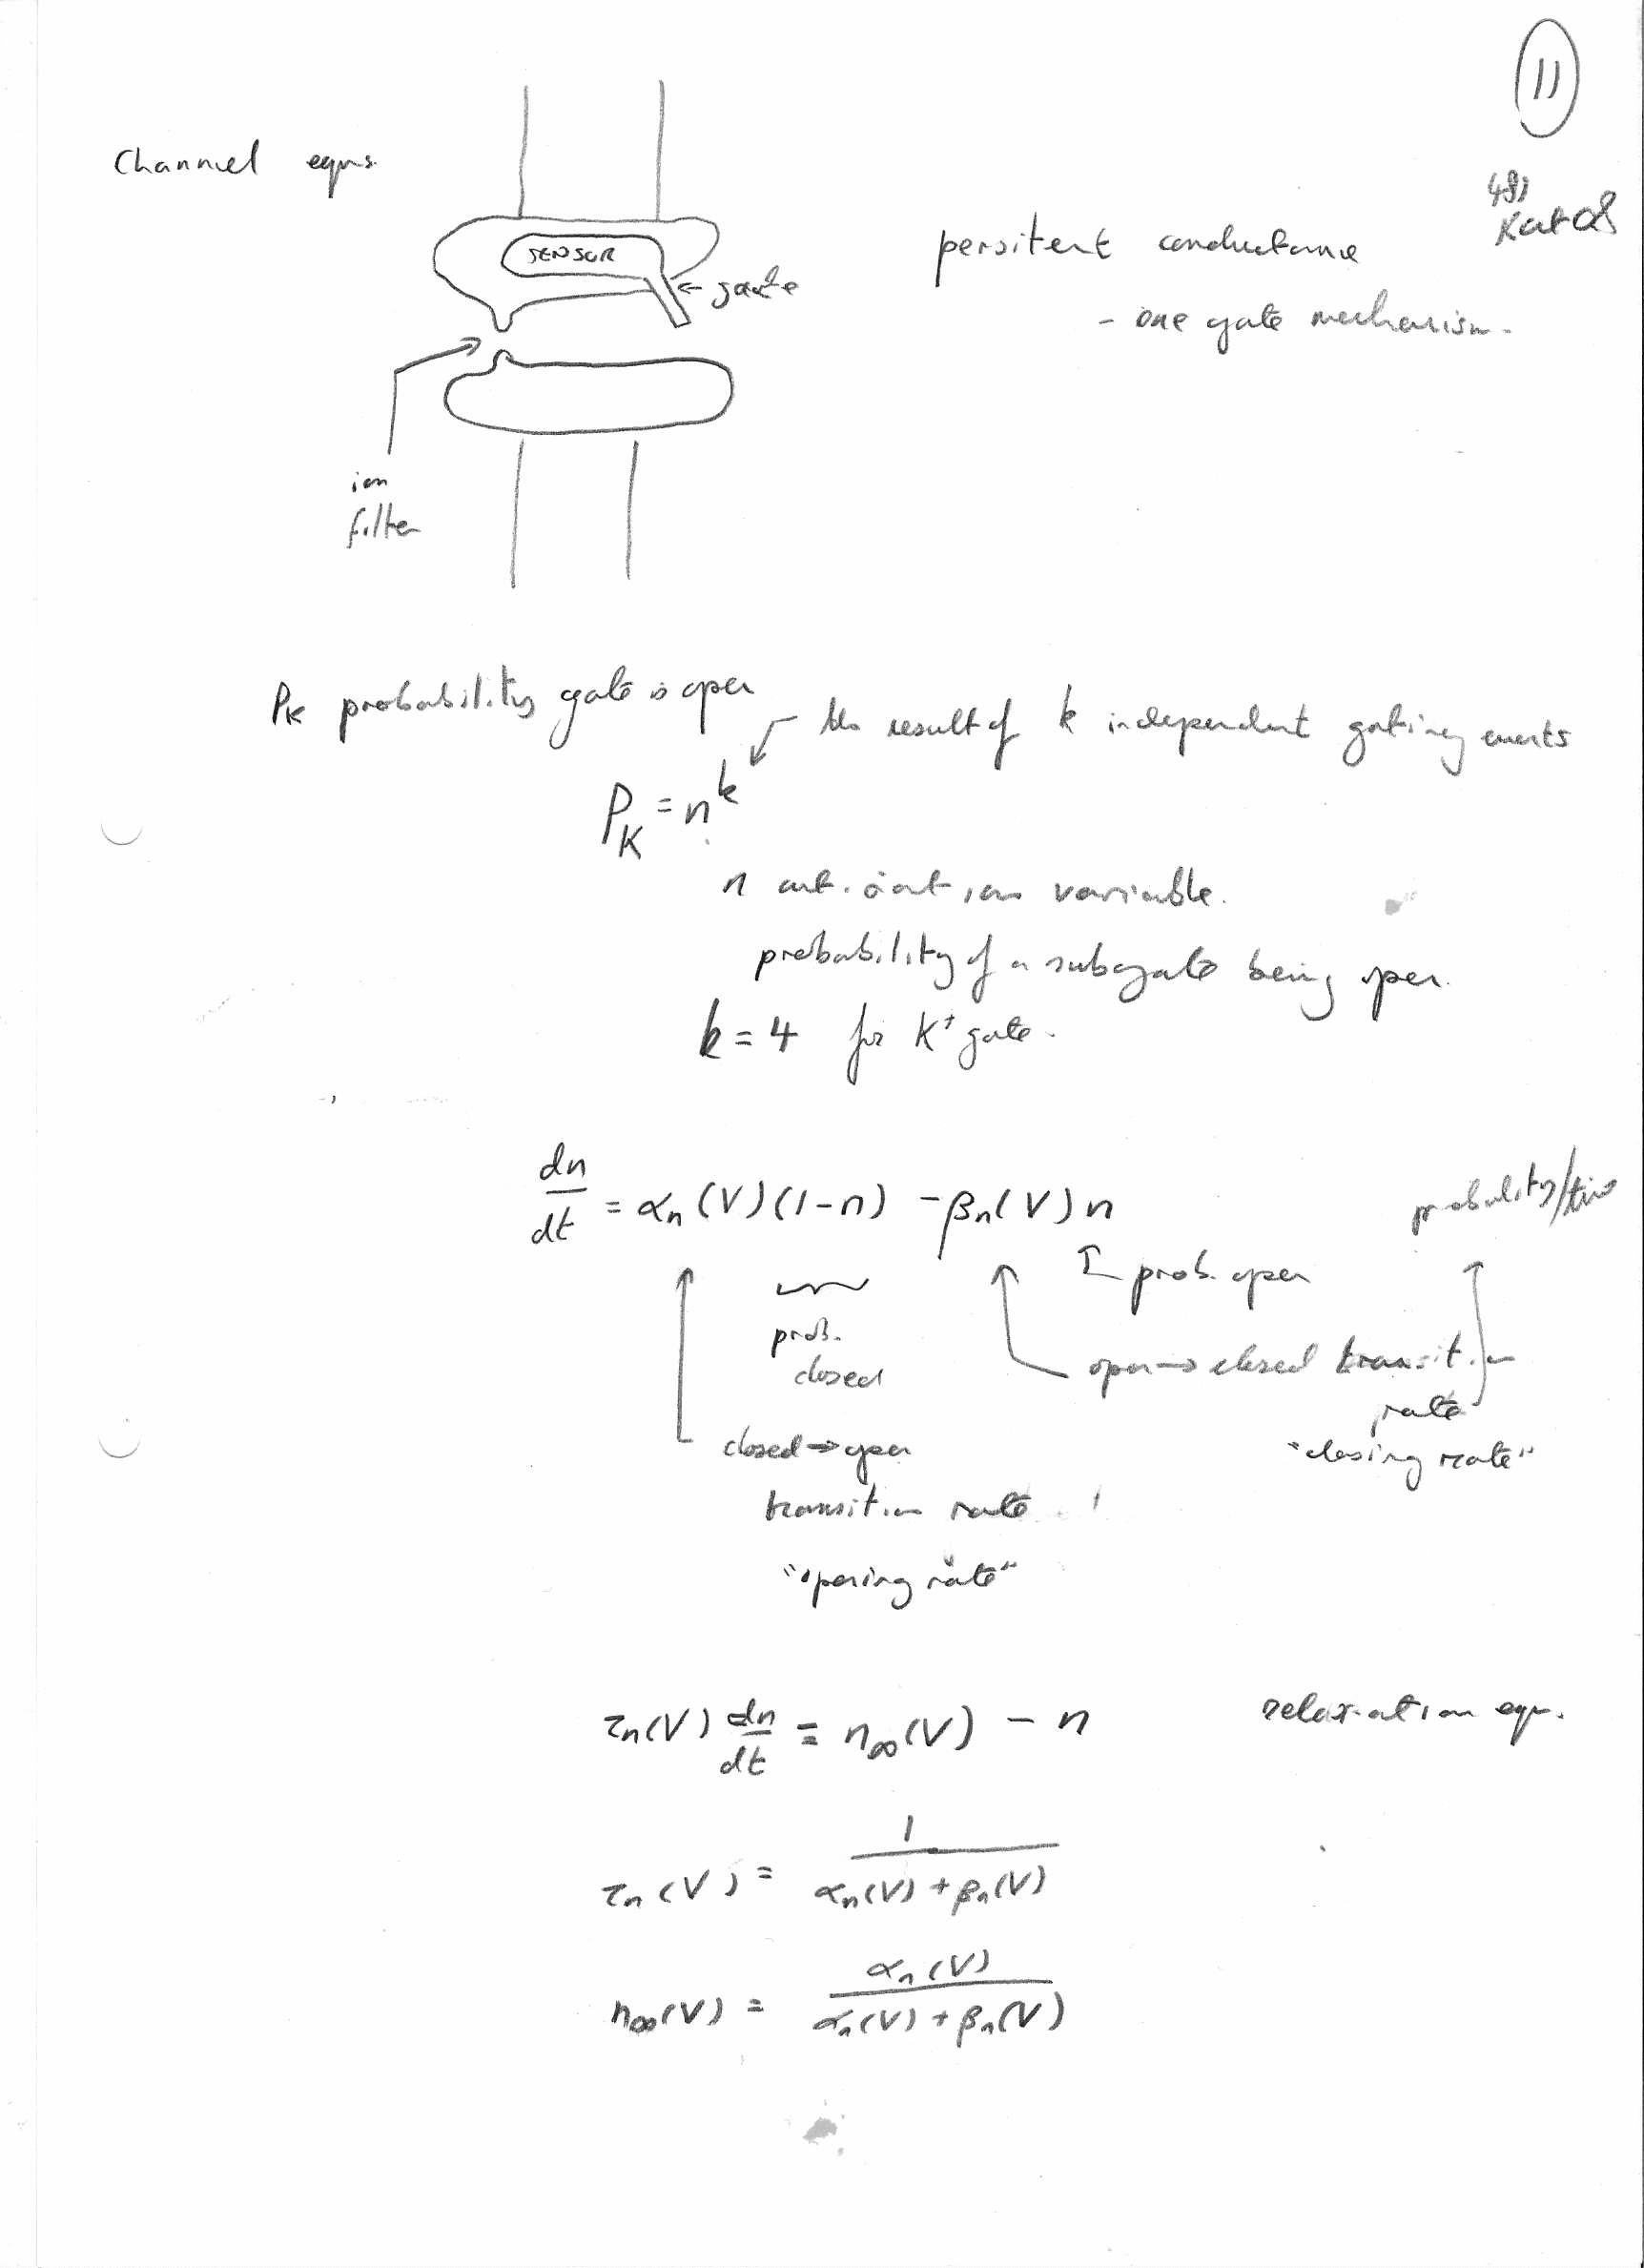 11
Channel eqns.
SENSOR
← gate
persitent conductance
- one gate mechanism.
ion
filter
P_K probability gate is open
the result of k independent gating events
P_K = n^k
n activation variable.
probability of a subgate being open.
k = 4 for K⁺ gate.
dn/dt = α_n(V)(1-n) - β_n(V)n
probability/time
prob. open
prob.
closed
open → closed transition
rate
"closing rate"
closed → open
transition rate
"opening rate"
τ_n(V) dn/dt = n_∞(V) - n
relaxation eqn.
τ_n(V) = 1/(α_n(V) + β_n(V))
n_∞(V) = α_n(V)/(α_n(V) + β_n(V))